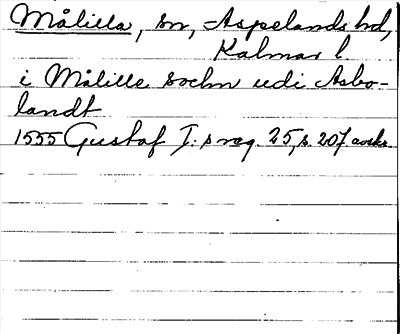 Målilla, sn, Aspelands hd,
Kalmar l.
i Målille sochn udi Asbo-
landt
1555 Gustaf I:s reg. 25, s. 207 avskr.